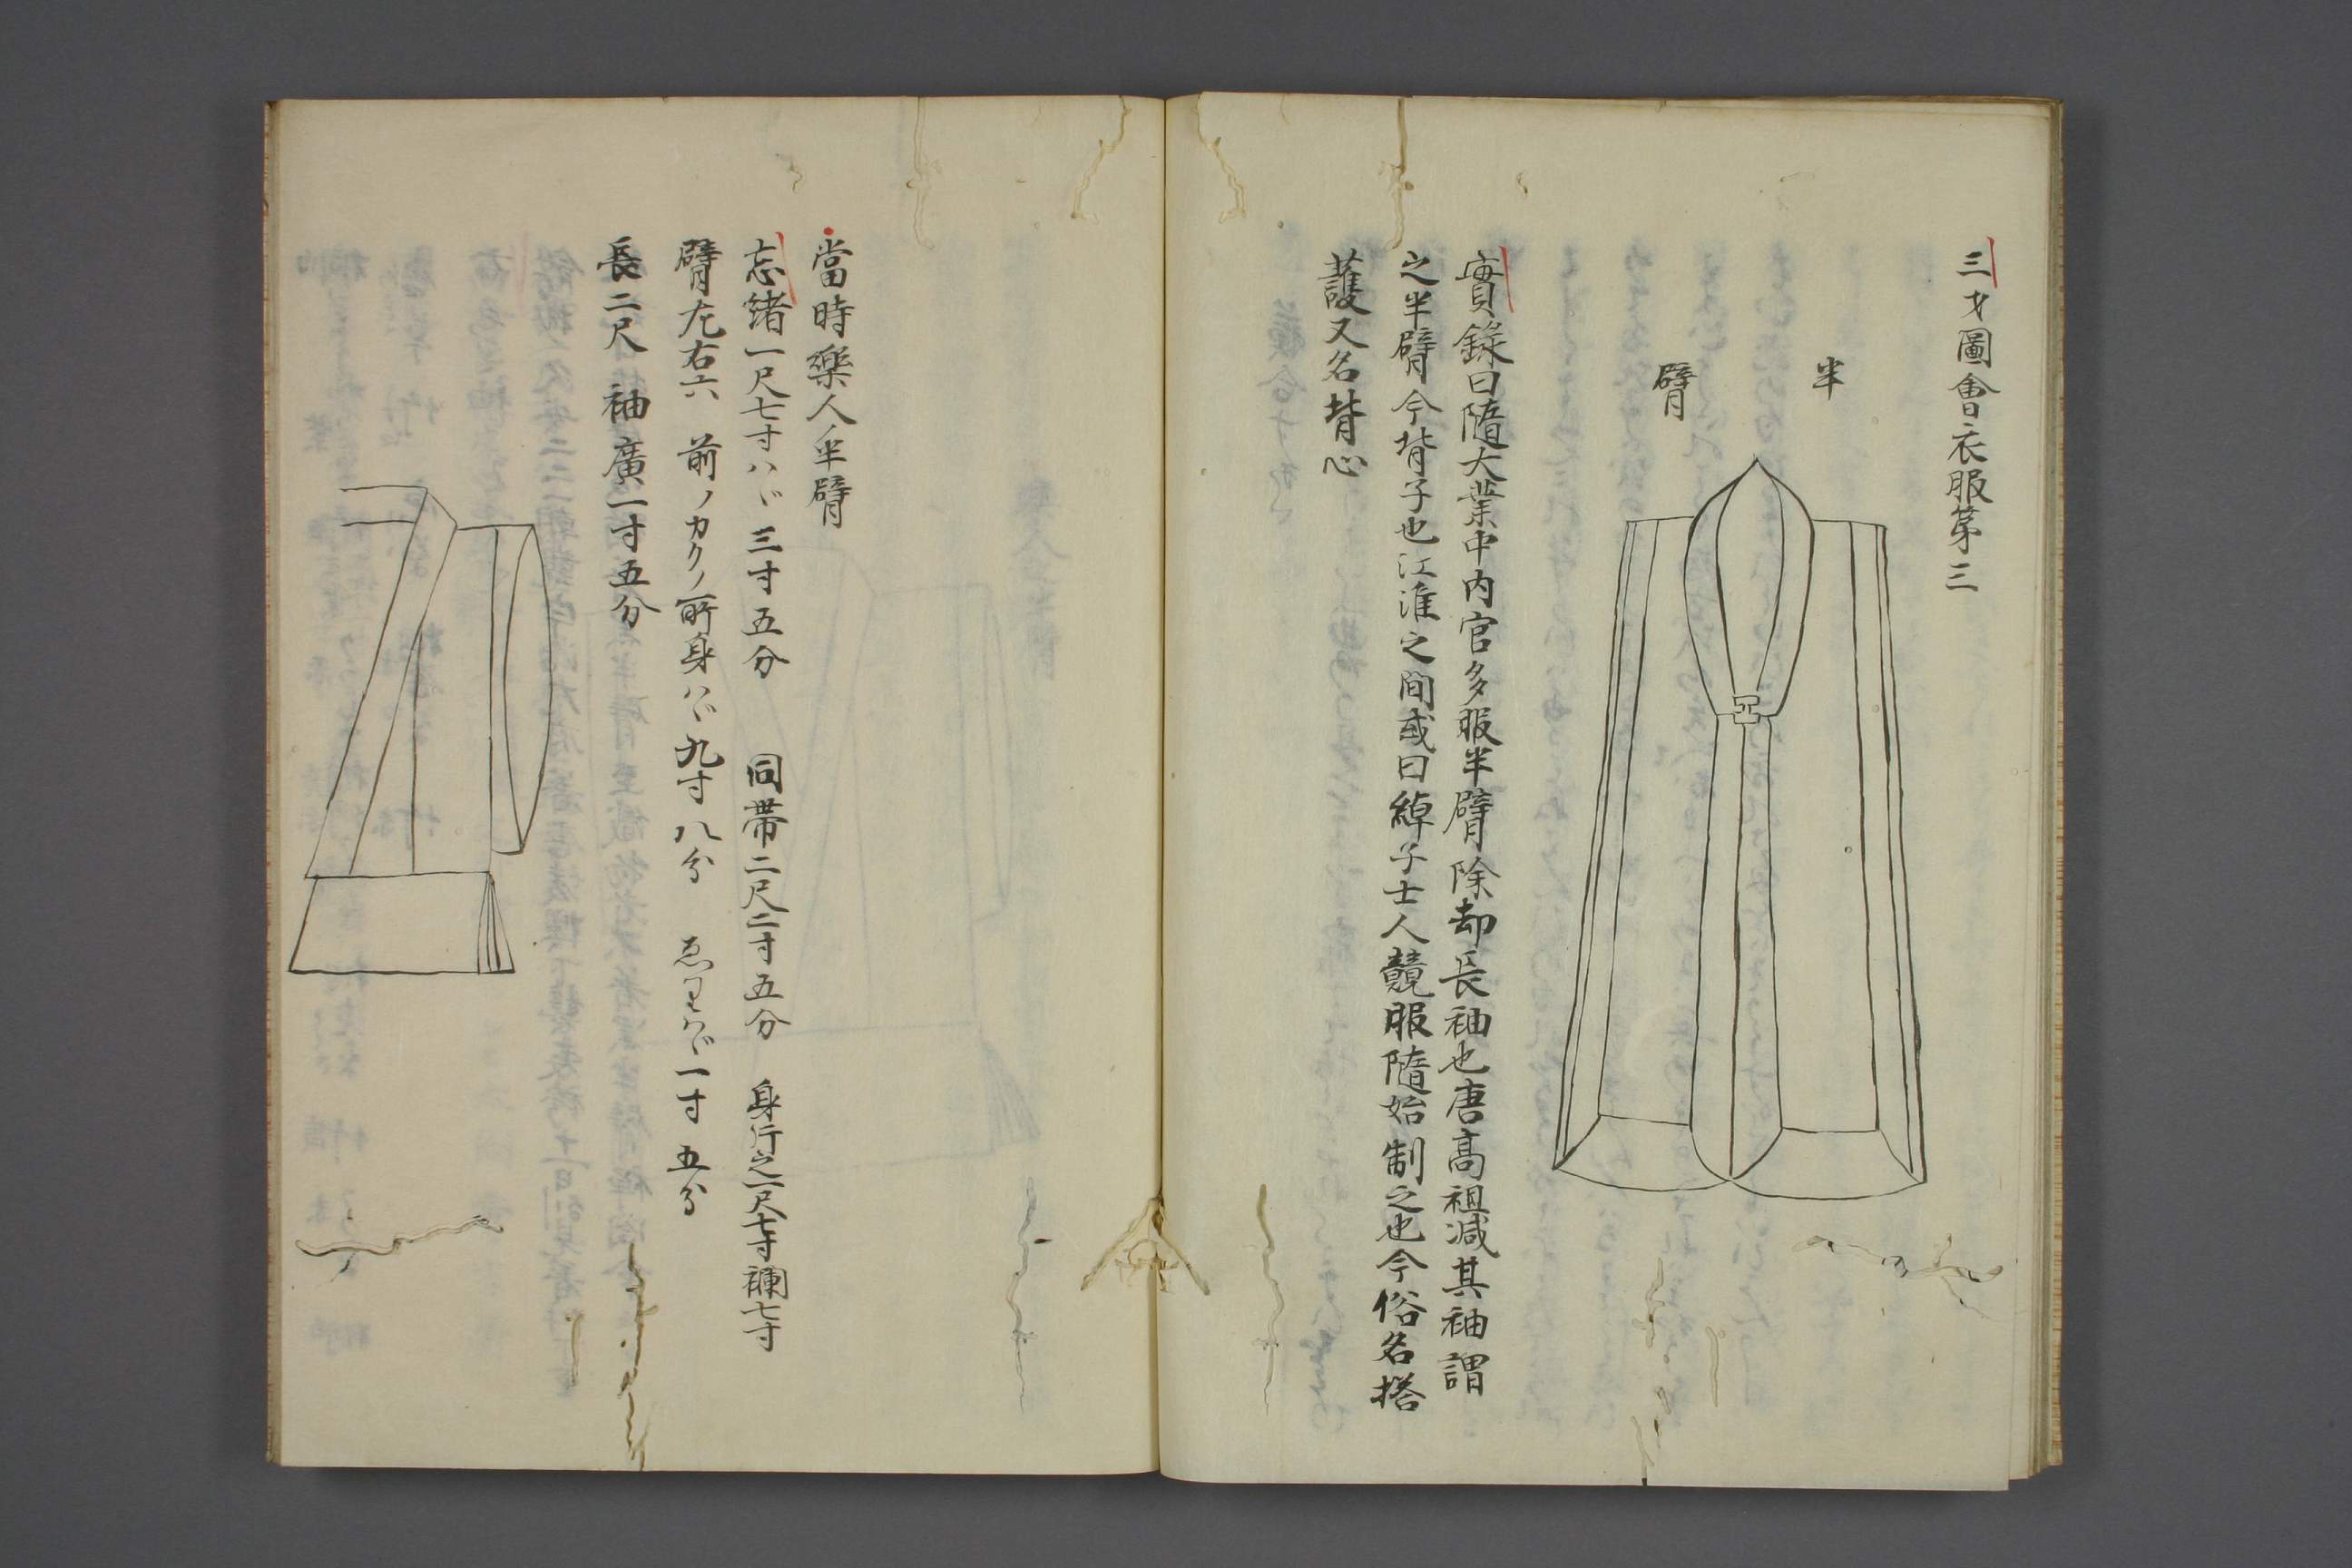 三才圖會衣服第三
半
臂
實錄曰隨大業中內官多服半臂除却長袖也唐高祖減其袖謂
之半臂今背子也江淮之間或曰綽子士人競服隨始制之也今俗名搭
護又名背心
當時樂人半臂
忘緒一尺七寸ハヾ三寸五分 同帯二尺二寸五分 身行之一尺七寸襴七寸
臂左右六 前ノカクノ所身ハヾ九寸八分 ゑりハヾ一寸五分
長二尺 袖廣一寸五分